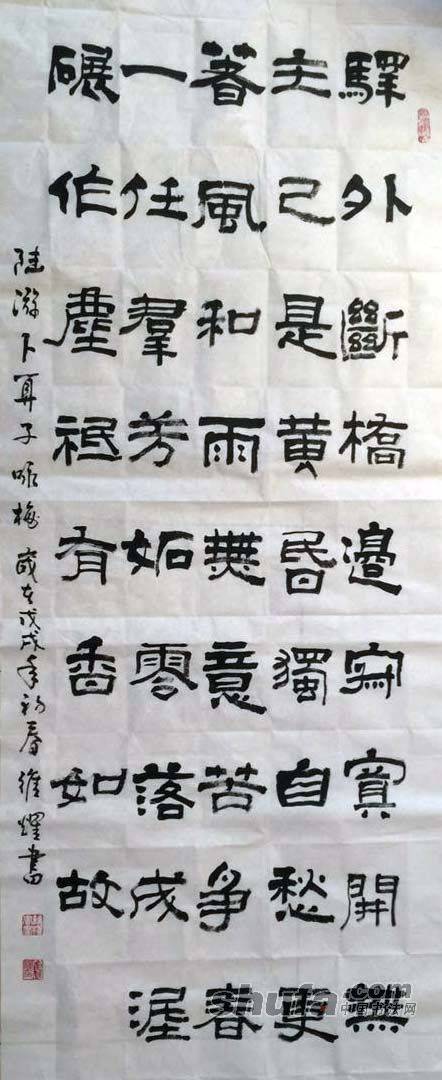 驛外斷橋邊寂寞開無
主已是黃昏獨自愁更
著風和雨無意苦爭春
一任羣芳妬零落成泥
碾作塵祗有香如故
陸游卜算子咏梅歲在戊戌年初春維耀書
shufa.com
中国书法网